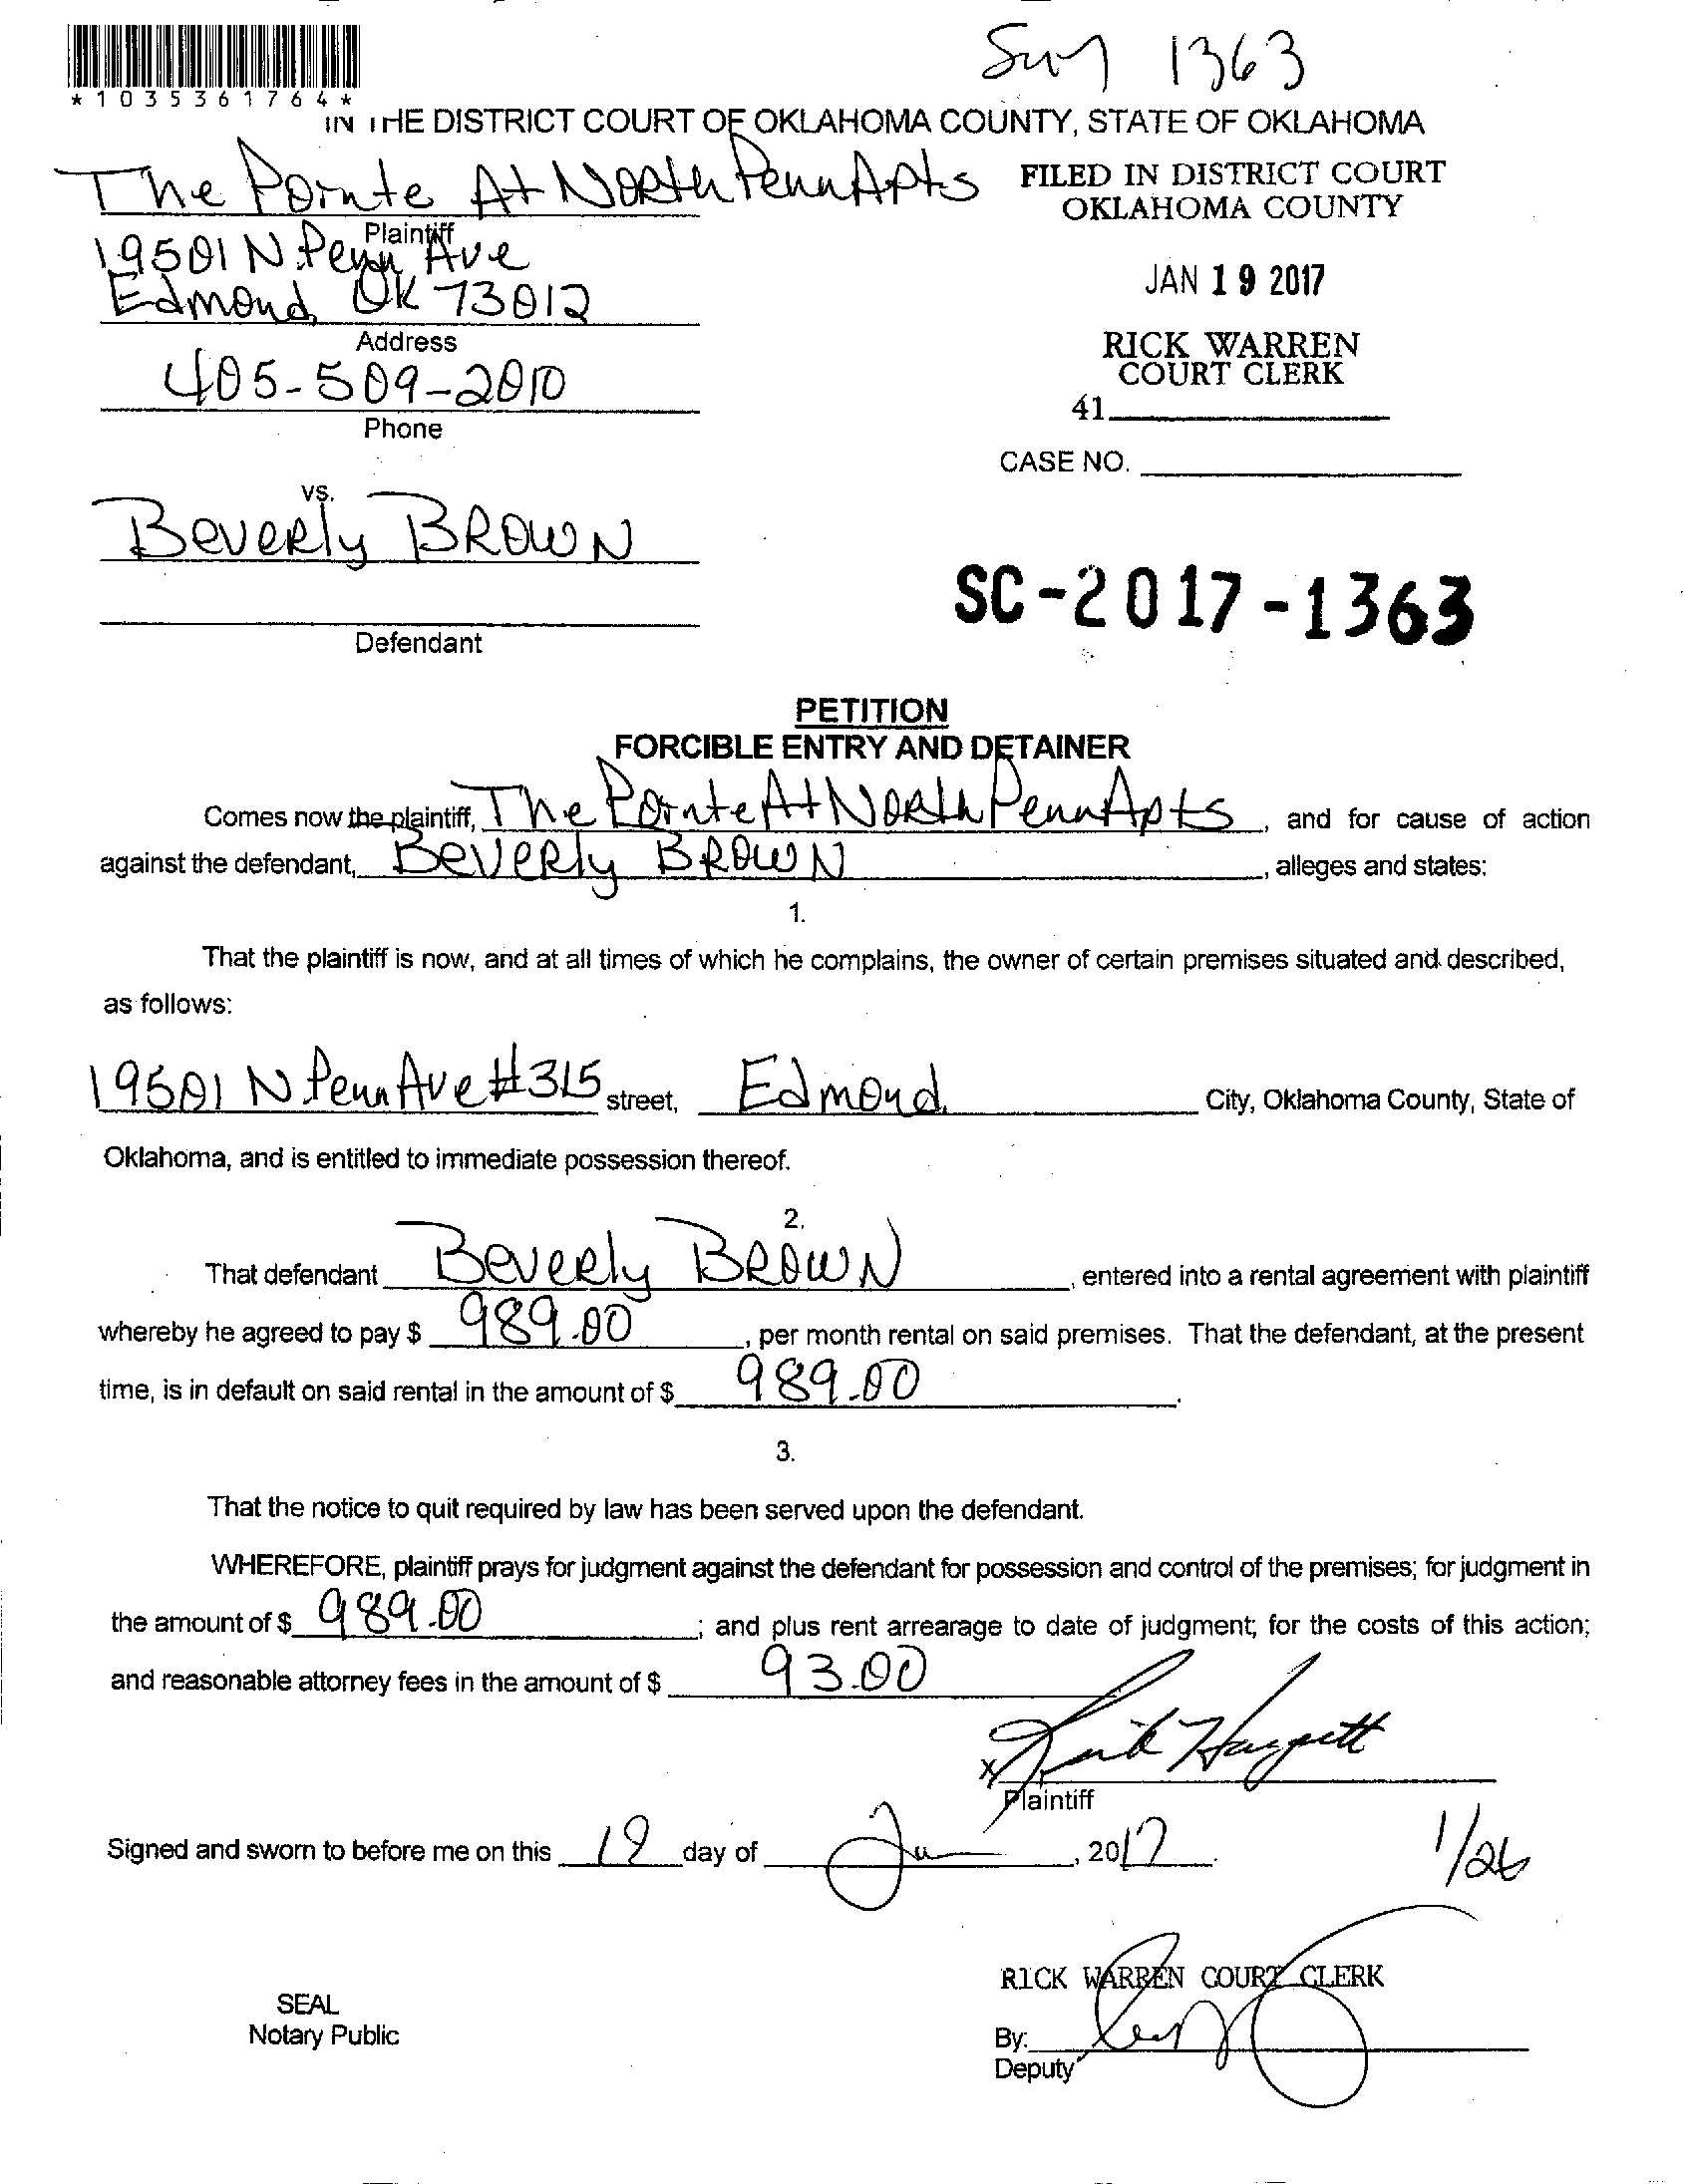 1363
*1035361764*
IN THE DISTRICT COURT OF OKLAHOMA COUNTY, STATE OF OKLAHOMA
The Pointe At North Penn Apts
Plaintiff
19501 N. Penn Ave
Edmond, OK 73012
Address
405-509-2010
Phone
FILED IN DISTRICT COURT
OKLAHOMA COUNTY
JAN 19 2017
RICK WARREN
COURT CLERK
41
CASE NO.
vs.
Beverly Brown
Defendant
SC-2017-1363
PETITION
FORCIBLE ENTRY AND DETAINER
Comes now the plaintiff, The Pointe At North Penn Apts, and for cause of action
against the defendant, Beverly Brown, alleges and states:
1.
That the plaintiff is now, and at all times of which he complains, the owner of certain premises situated and described,
as follows:
19501 N. Penn Ave #315 street, Edmond City, Oklahoma County, State of
Oklahoma, and is entitled to immediate possession thereof.
2.
That defendant Beverly Brown, entered into a rental agreement with plaintiff
whereby he agreed to pay $ 989.00, per month rental on said premises. That the defendant, at the present
time, is in default on said rental in the amount of $ 989.00.
3.
That the notice to quit required by law has been served upon the defendant.
WHEREFORE, plaintiff prays for judgment against the defendant for possession and control of the premises; for judgment in
the amount of $ 989.00; and plus rent arrearage to date of judgment; for the costs of this action;
and reasonable attorney fees in the amount of $ 93.00
x
Plaintiff
Signed and sworn to before me on this 19 day of Jan, 2017.
1/26
RICK WARREN COURT CLERK
SEAL
Notary Public
By:
Deputy